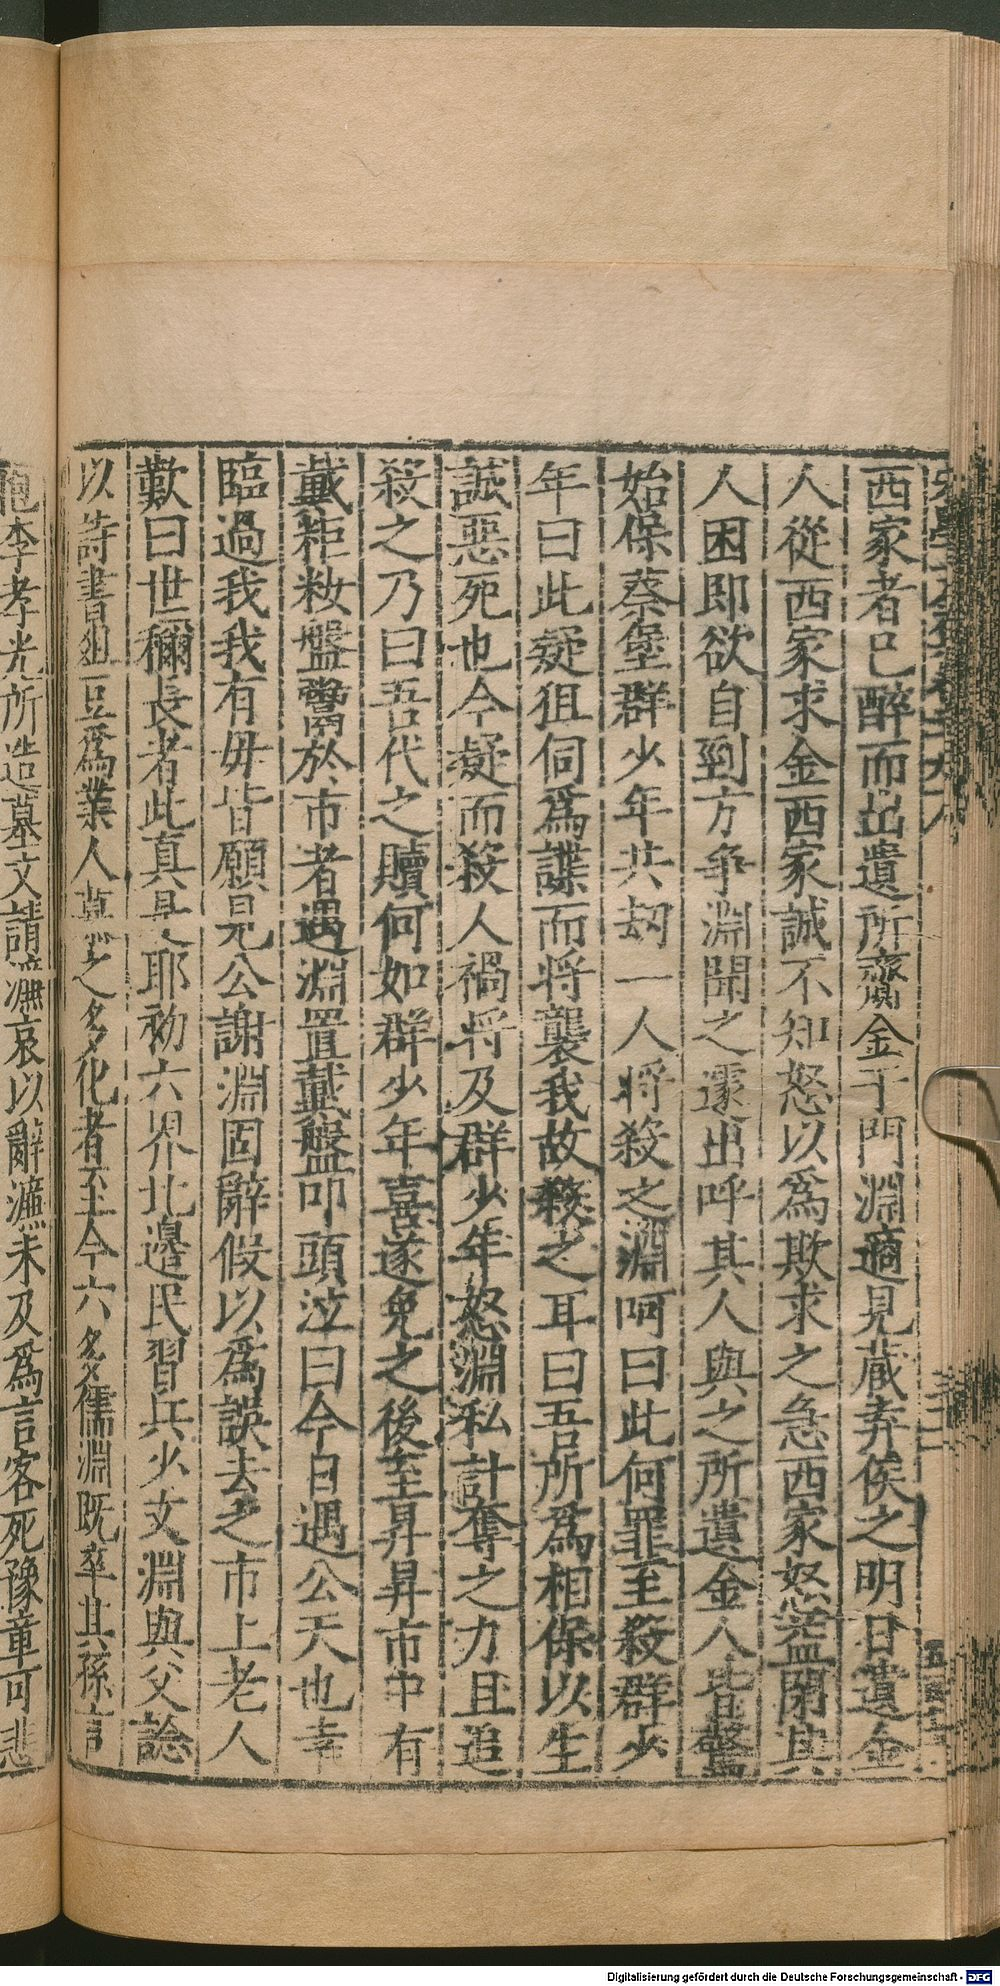 西家者已醉而出遺所齎金于門淵適見蔵弆俟之明日遺金
人從西家求金西家誠不知怒以爲欺求之急西家怒盗閉其
人困即欲自剄方争淵聞之遽出呼其人與之所遺金人皆驚
始保蔡堡群少年共刼一人將殺之淵呵曰此何罪至殺群少
年曰此疑狙伺爲諜而将襲我故殺之耳曰吾所爲相保以生
誠惡死也今疑而殺人禍将及群少年怒淵私計奪之力且追
殺之乃曰吾代之贖何如群少年喜遂免之後至昇昇市中有
戴粔籹盤鬻於市者遇淵置戴盤叩頭泣曰今日遇公天也幸
臨過我我有毋皆願見公謝淵固辭假以爲誤去之市上老人
歎曰世稱長者此真是耶初六界北邊民習兵少文淵與父諗
以詩書俎豆爲業人慕之多化者至今六多儒淵既卒其孫
李孝光所造墓文請濂哀以辭濂未及爲言客死豫章可悲
Digitalisierung gefördert durch die Deutsche Forschungsgemeinschaft - DFG